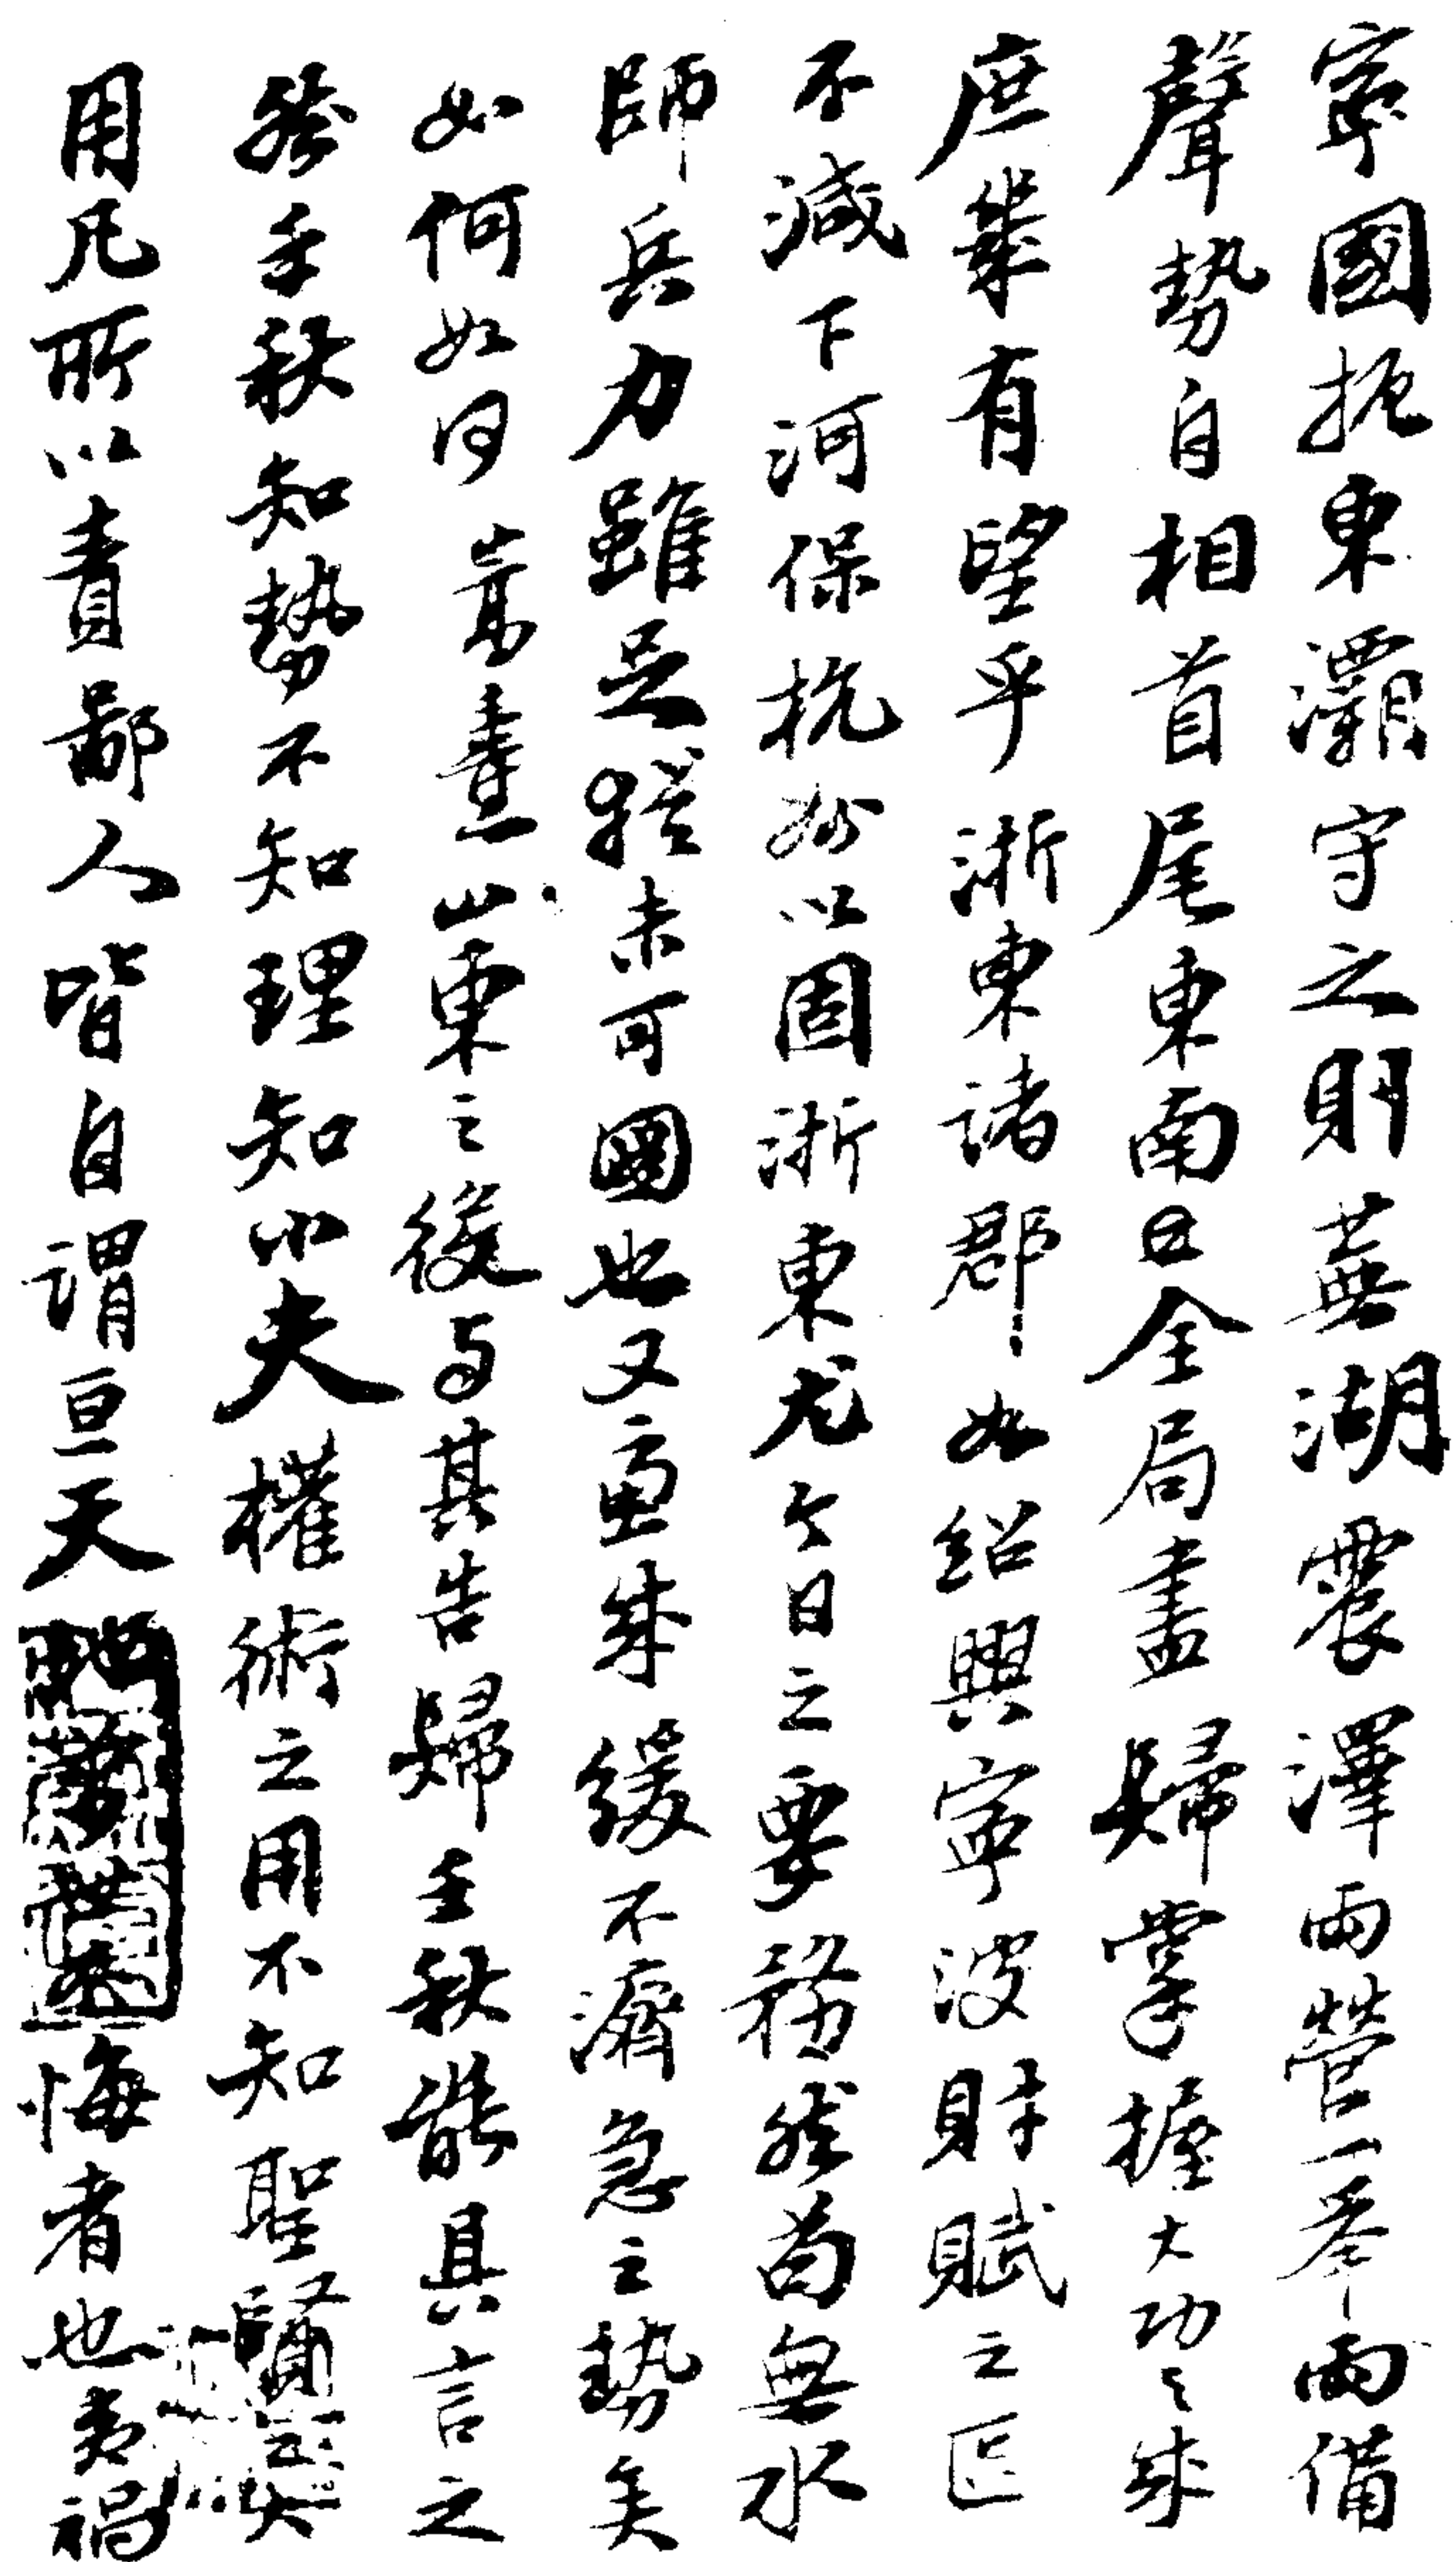 寧國扼東灞守之則蕪湖震澤兩營一举兩備
聲勢自相首尾東南日全局盡歸掌握大功之成
庶幾有望乎浙東諸郡〻如紹興寧波財賦之區
不減下河保杭州以固浙東尤今日之要務然苟無水
師兵力雖足猶未可圖也又重成緩不濟急之勢矣
如何如何嵩燾山東之後与其告歸壬秋能具言之
然壬秋知勢不知理知小夫權術之用不知聖賢大
用凡所以責鄙人皆自謂亘天地萬世無悔者也夷禍